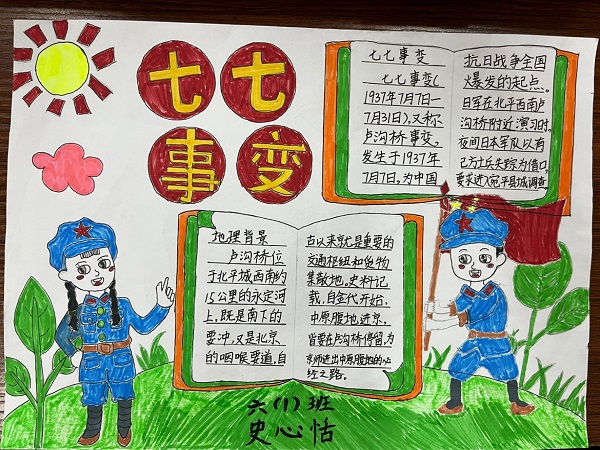 七七
事变
七七事变
七七事变(
1937年7月7日—
7月31日),又称
卢沟桥事变。
发生于1937年
7月7日,为中国
抗日战争全国
爆发的起点。
日军在北平西南卢
沟桥附近演习时。
夜间日本军队以有
己方士兵失踪为借口,
要求进入宛平县城调查
地理背景
卢沟桥位
于北平城西南约
15公里的永定河
上,既是南下的
要冲,又是北京
的咽喉要道,自
古以来就是重要的
交通枢纽和货物
集散地。史料记
载,自金代开始,
中原腹地进京,
皆要在卢沟桥停留,为
京师进出中原腹地的必
经之路。
六(1)班
史心怡